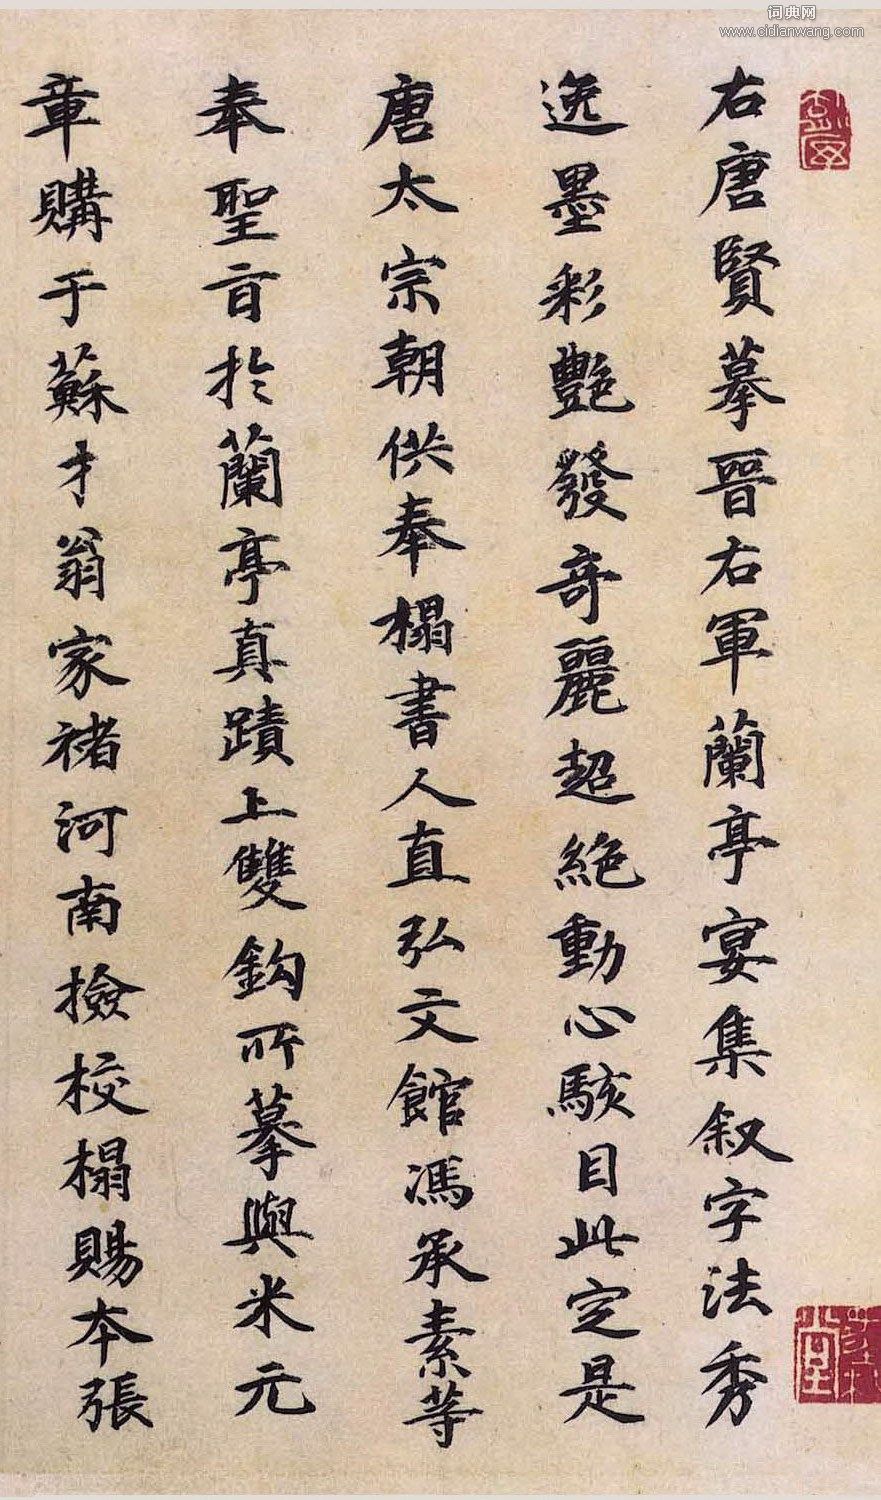 词典网
www.cidianwang.com
右唐賢摹晉右軍蘭亭宴集叙字法秀
逸墨彩艷發奇麗超絶動心駭目此定是
唐太宗朝供奉榻書人直弘文館馮承素等
奉聖旨於蘭亭真蹟上雙鈎所摹與米元
章購于蘇才翁家褚河南撿校榻賜本張